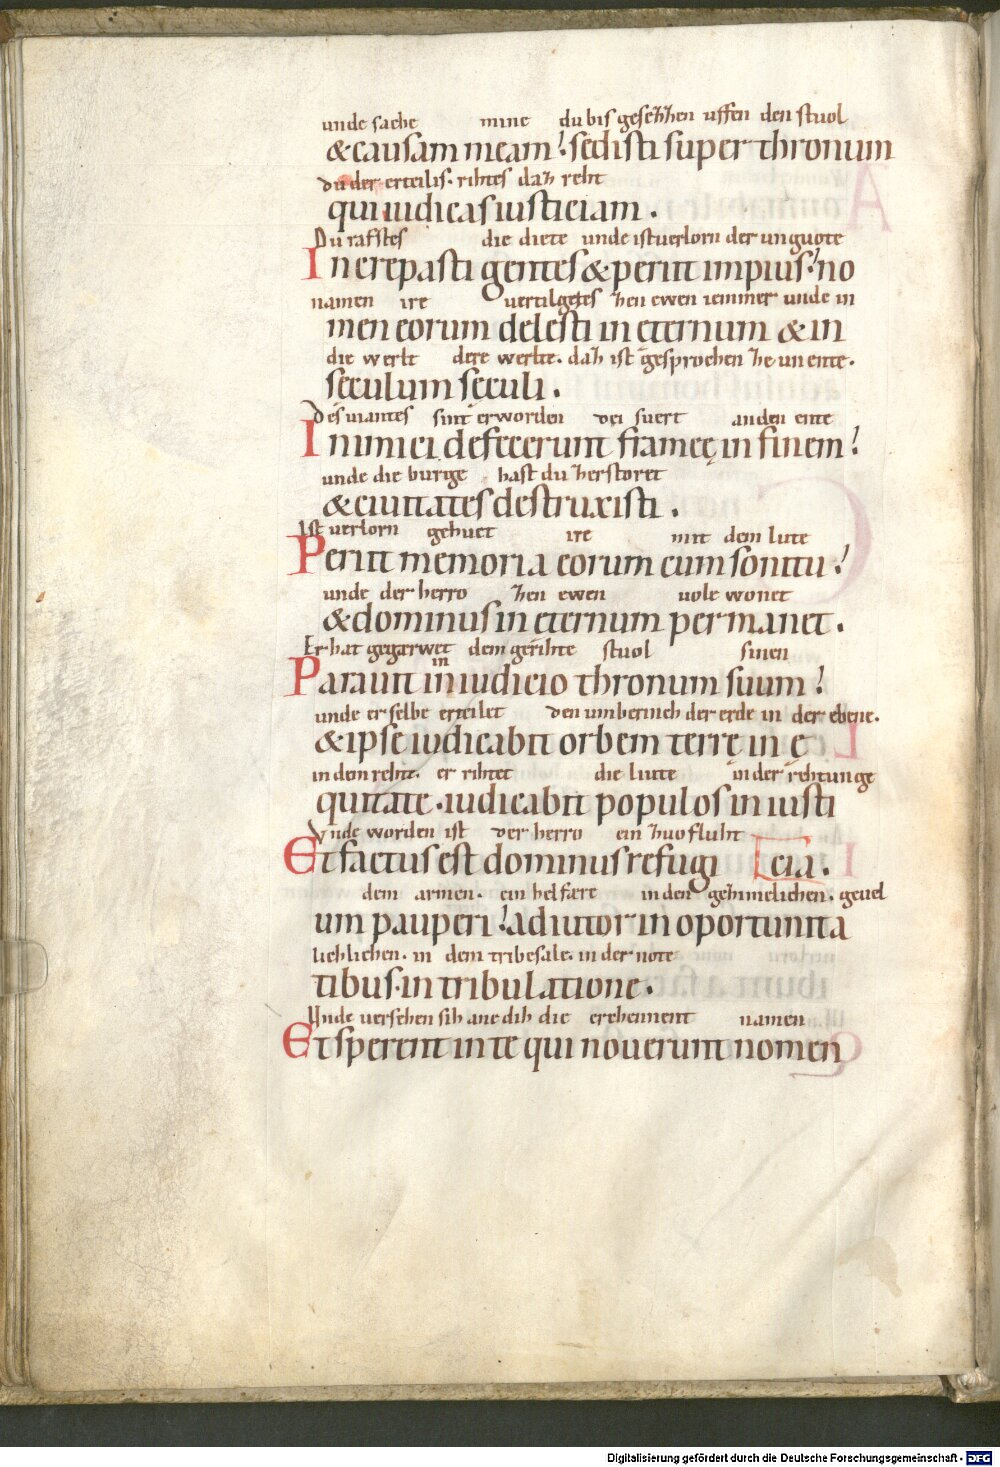 unde sache mine du bis gesezzen uffen den stuol
&causam meam. sedisti super thronum
du der erteilis. rihtes daz reht
qui iudicas iusticiam.
Du rafstes die diete unde ist uerlorn der unguote
Increpasti gentes & periit impius. no
namen ire uertilgetes zen ewen iemmer unde in
men eorum delesti in eternum & in
die werlt dere werlte. daz ist gesprochen ze un ente.
sęculum sęculi.
Des uiantes sint erworden dei suert an den ente
Inimici defecerunt frameę in finem
unde die burge hast du zerstoret
& ciuitates destruxisti.
Ist uerlorn gehuct ire mit dem lute
Periit memoria eorum cum sonitu
unde der herro zen ewen uole wonet
& dominus in eternum permanet.
Er hat gegarwet dem gerihte stuol sinen
in
Parauit in iudicio thronum suum
unde er selbe erteilet den umberinch der erde in der ebene.
& ipse iudicabit orbem terrę in ę
in dem rehte. er rihtet die liute in der rehtunge
quitate. iudicabit populos in iusti
Vnde worden ist der herro ein zuofluht
Et factus est dominus refugi cia.
dem armen. ein helfære in den gehimelichen. geuel
um pauperi. adiutor in oportunita
lichlichen. in dem tribesale. in der note
tibus. in tribulatione.
Unde uersehen sih ane dih die erchennent namen
Et sperent in te qui nouerunt nomen
Digitalisierung gefördert durch die Deutsche Forschungsgemeinschaft - DFG